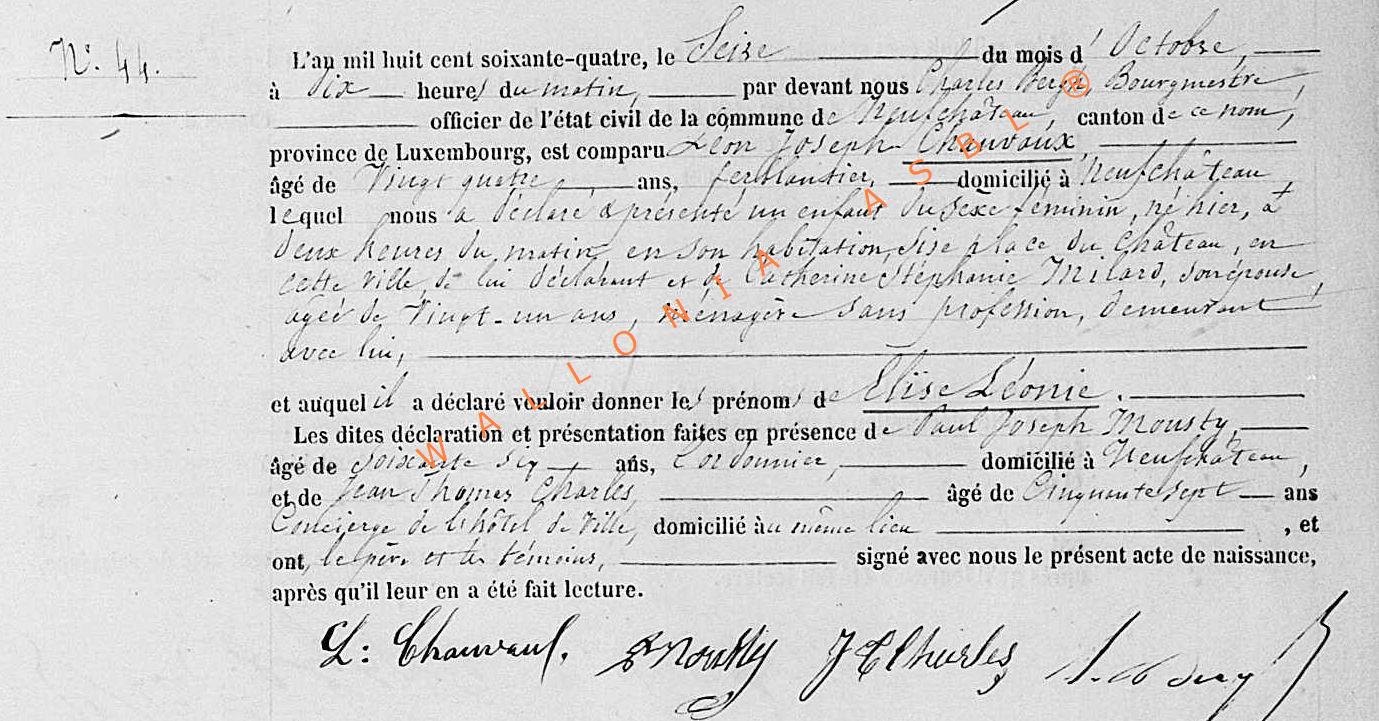 N° 44.
L'an mil huit cent soixante-quatre, le Seize du mois d'Octobre,
à Dix heures du matin, par devant nous Charles Bergh, Bourgmestre,
officier de l'état civil de la commune de Neufchâteau, canton de ce nom,
province de Luxembourg, est comparu Léon Joseph Chauvaux,
âgé de Vingt quatre ans, ferblantier, domicilié à Neufchâteau
lequel nous a déclaré & présenté un enfant du sexe féminin, né hier, à
deux heures du matin, en son habitation, sise place du Château, en
cette ville, de lui déclarant et de Catherine Stéphanie Milard, son épouse,
agée de Vingt-un ans, ménagère sans profession, demeurant
avec lui,
et auquel il a déclaré vouloir donner les prénoms de Elise Léonie.
Les dites déclaration et présentation faites en présence de Paul Joseph Mousty,
âgé de soixante six ans, Cordonnier, domicilié à Neufchâteau,
et de Jean Thomas Charles, âgé de Cinquante sept ans
Concierge de l'hôtel de Ville, domicilié au même lieu , et
ont, le père et les témoins, signé avec nous le présent acte de naissance,
après qu'il leur en a été fait lecture.
L: Chauvaux. Mousty J T Charles
WALLONIA ASBL ®